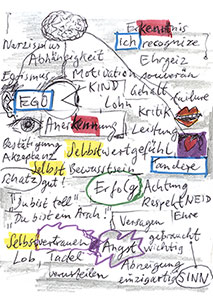 Erkenntnis
Narzissmus
ich recognize
Abhängigkeit
Ehrgeiz
Egoismus
Motivation souverän
KIND
Gehalt
EGO
Lohn
failure
Kritik
Anerkennung
Leistung
Bestätigung
Selbstwertgefühl
Akzeptanz
Selbstbewusstsein
andere
Schatz
gut!
Erfolg
Achtung
"Du bist toll"
Respekt NEID
"Du bist ein Arsch!"
Ehre
Versagen
Selbstvertrauen
Angst
gebraucht
wichtig
Lob
Tadel
Abneigung
verurteilen
einzigartig
SINN